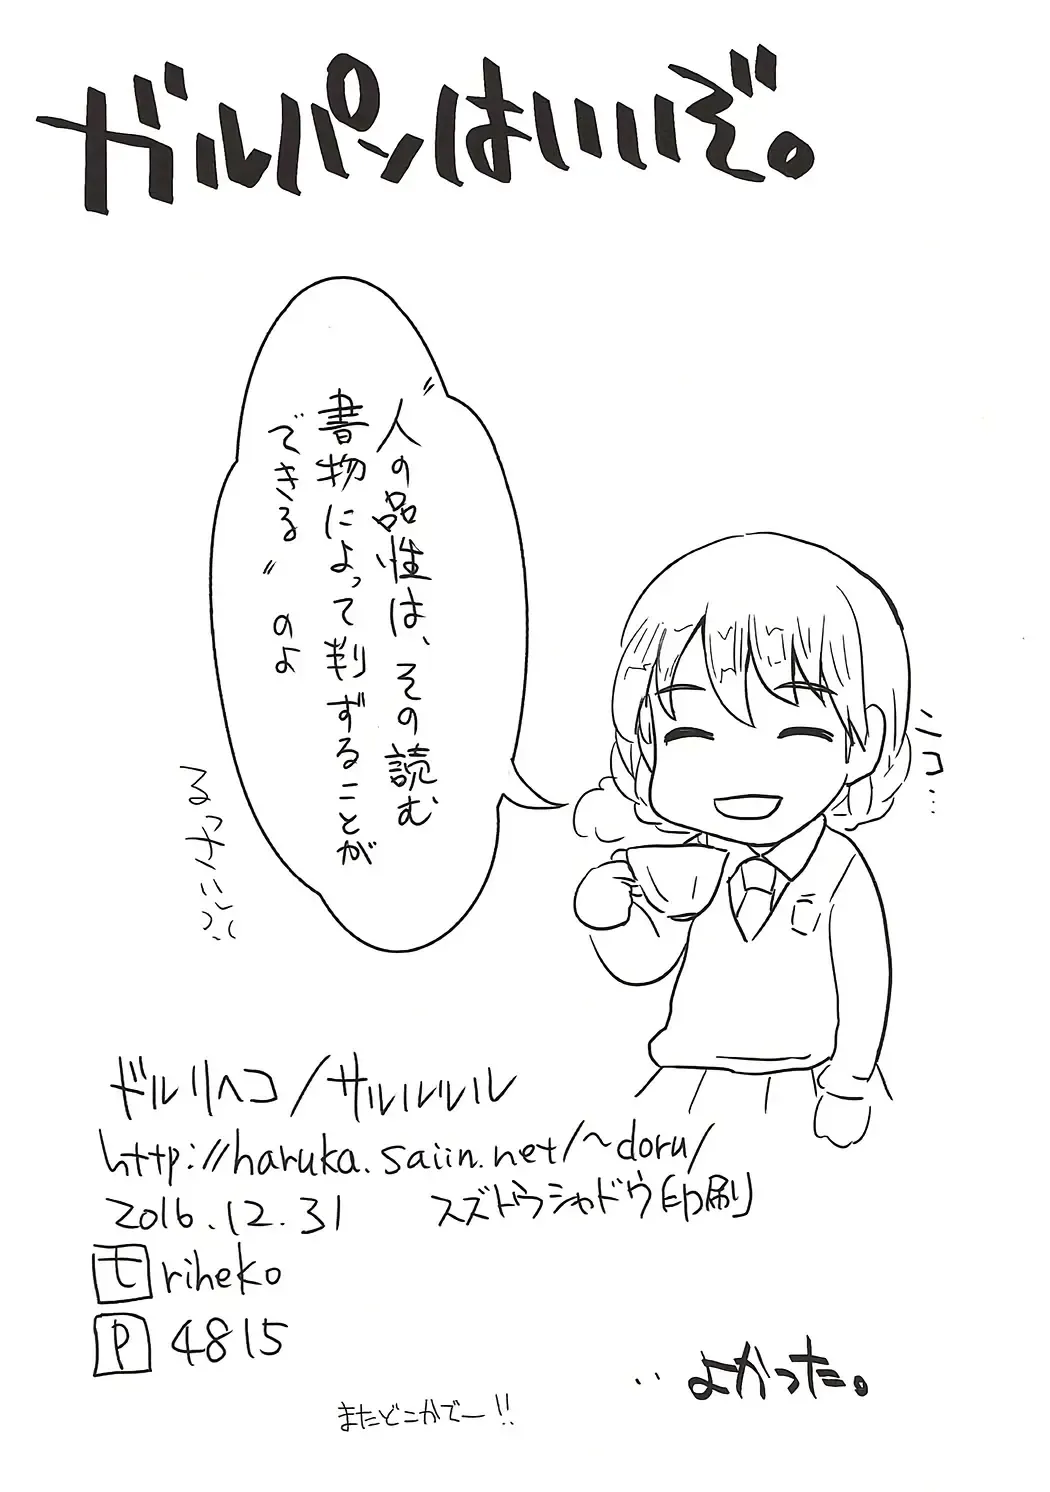 ガルパンはいいぞ。
"人の品性は、その読む
書物によって判ずることが
できる" のよ
るっさいしっ
ニコ…
ドルリヘコ/サルルルル
http://haruka.saiin.net/~doru/
2016.12.31 スズトウシャドウ印刷
モ riheko
P 4815
‥よかった。
またどこかでー!!